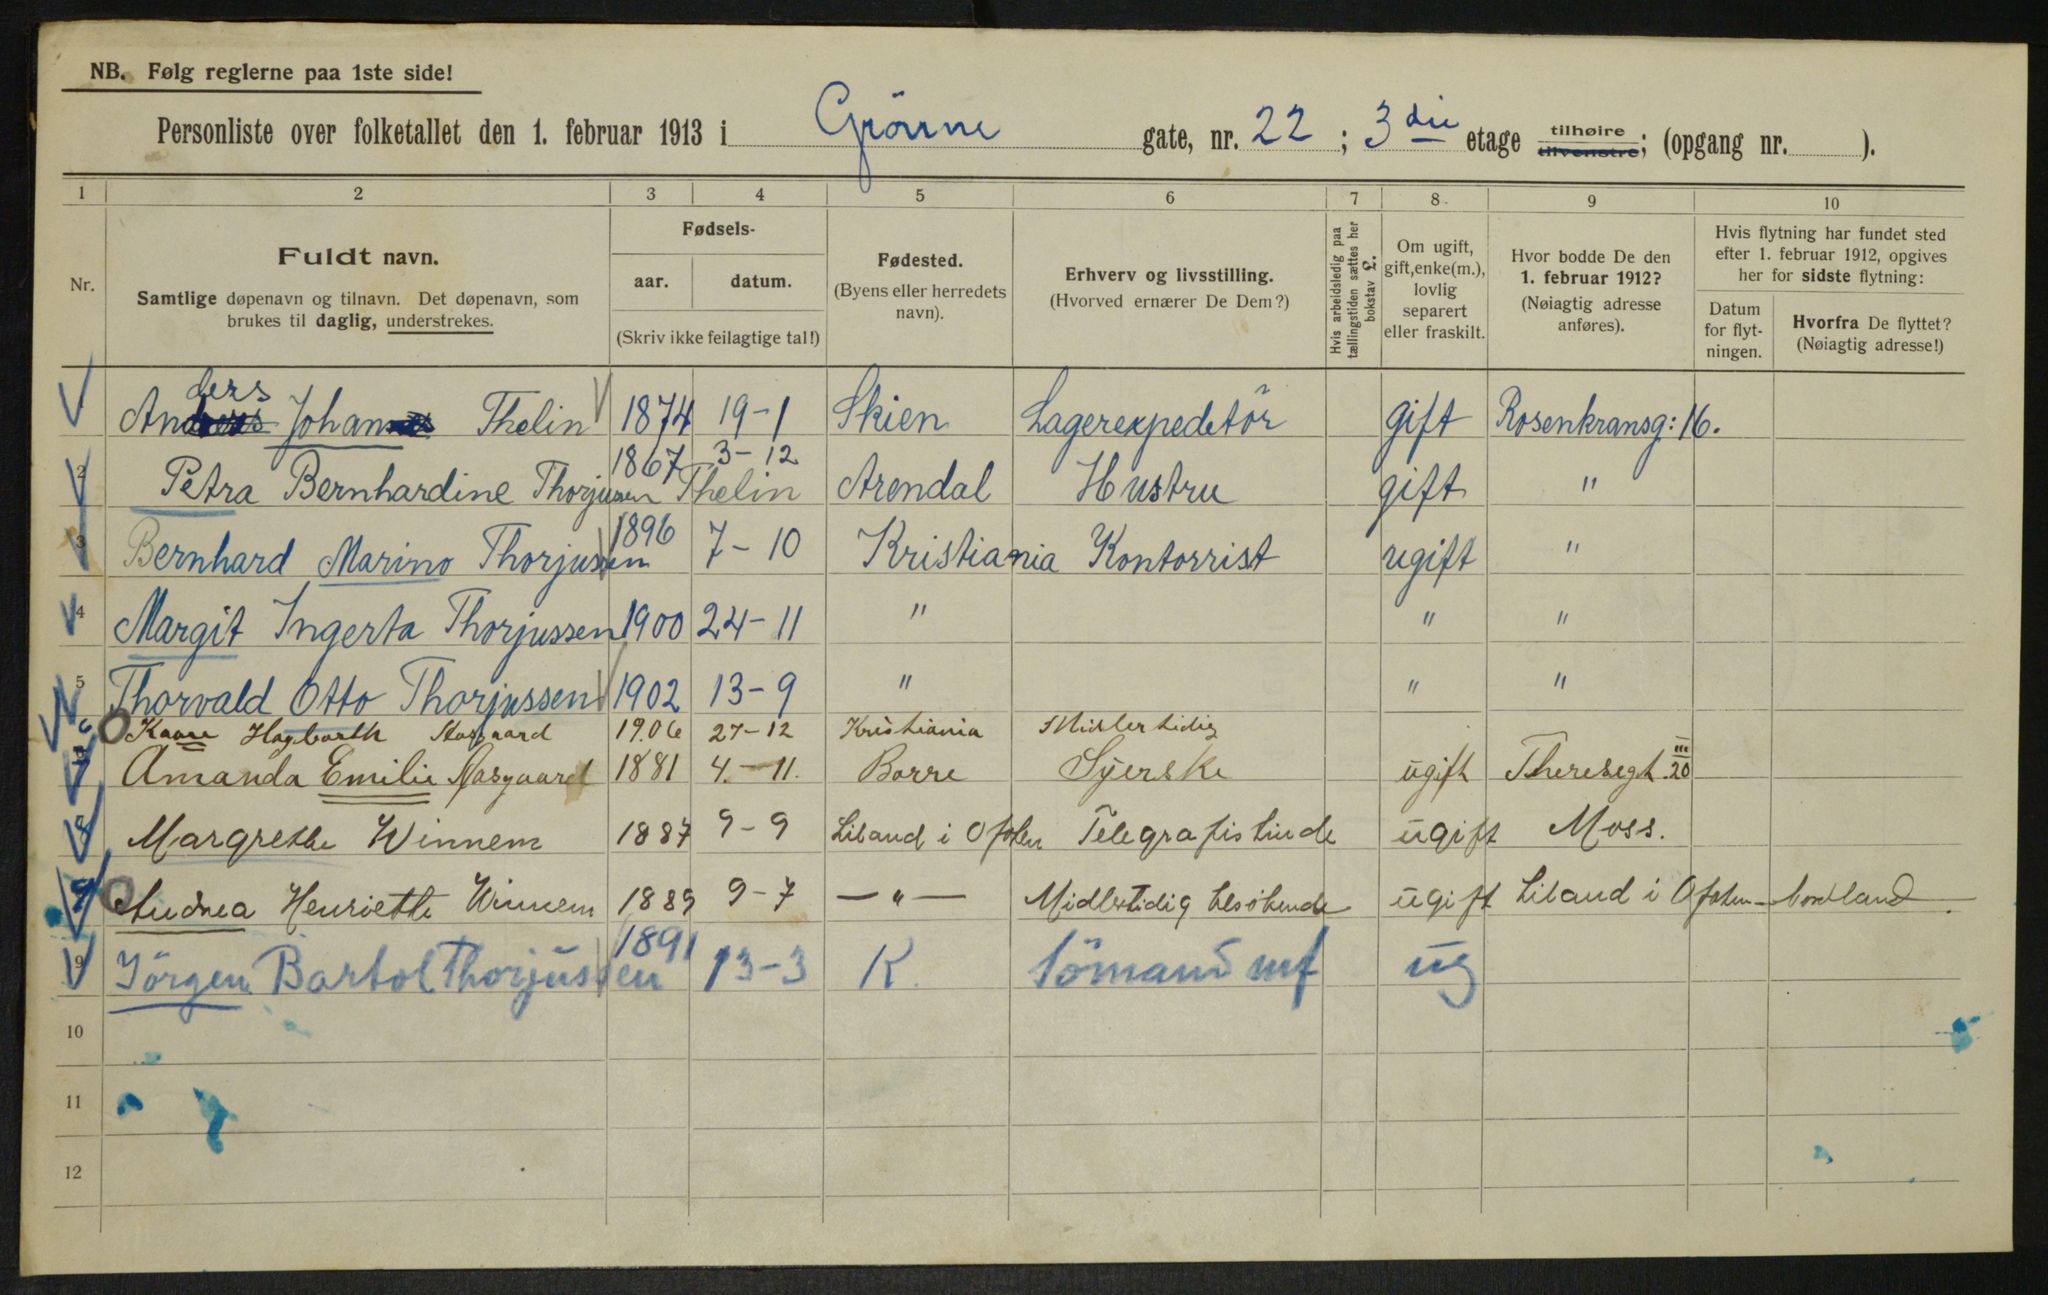 NB. Følg reglerne paa 1ste side!
Personliste over folketallet den 1. februar 1913 i Grönne gate, nr. 22 ; 3 die etage tilhøire tilvenstre; (opgang nr. ).
1 2 3 4 5 6 7 8 9 10
Nr.
Fuldt navn.
Samtlige døpenavn og tilnavn. Det døpenavn, som
brukes til daglig, understrekes.
Fødsels-
aar. datum.
(Skriv ikke feilagtige tal!)
Fødested.
(Byens eller herredets
navn).
Erhverv og livsstilling.
(Hvorved ernærer De Dem?)
Hvis arbeidsledig paa
tællingstiden sættes her
bokstav £.
Om ugift,
gift,enke(m.),
lovlig
separert
eller fraskilt.
Hvor bodde De den
1. februar 1912?
(Nøiagtig adresse
anføres).
Hvis flytning har fundet sted
efter 1. februar 1912, opgives
her for sidste flytning:
Datum
for flyt-
ningen.
Hvorfra De flyttet?
(Nøiagtig adresse!)
Anders Johan Thelin 1874 19-1 Skien Lagerexpedetör gift Rosenkransg: 16.
2 Petra Bernhardine Thorjussen Thelin 1867 3-12 Arendal Hustru gift "
3 Bernhard Marino Thorjussen 1896 7-10 Kristiania Kontorrist ugift "
4 Margit Ingerta Thorjussen 1900 24-11 " " "
5 Thorvald Otto Thorjussen 1902 13-9 " " "
6 Kaare Hagbarth 1906 27-12 Kristiania Midlertidig
7 Amanda Emilie Aasgaard 1881 4.-11. Borre Syerske ugift Theresegt. 20 III
8 Margrethe Winnem 1887 9-9 Liland i Ofoten Telegrafistinde ugift Moss.
9 Andrea Henriette Winnem 1889 9-7 —"— Midlertidig besökende ugift Liland i Ofoten - Nordland.
9 Jörgen Bartol Thorjussen 1891 13-3 K. Sömand mf ug
10
11
12